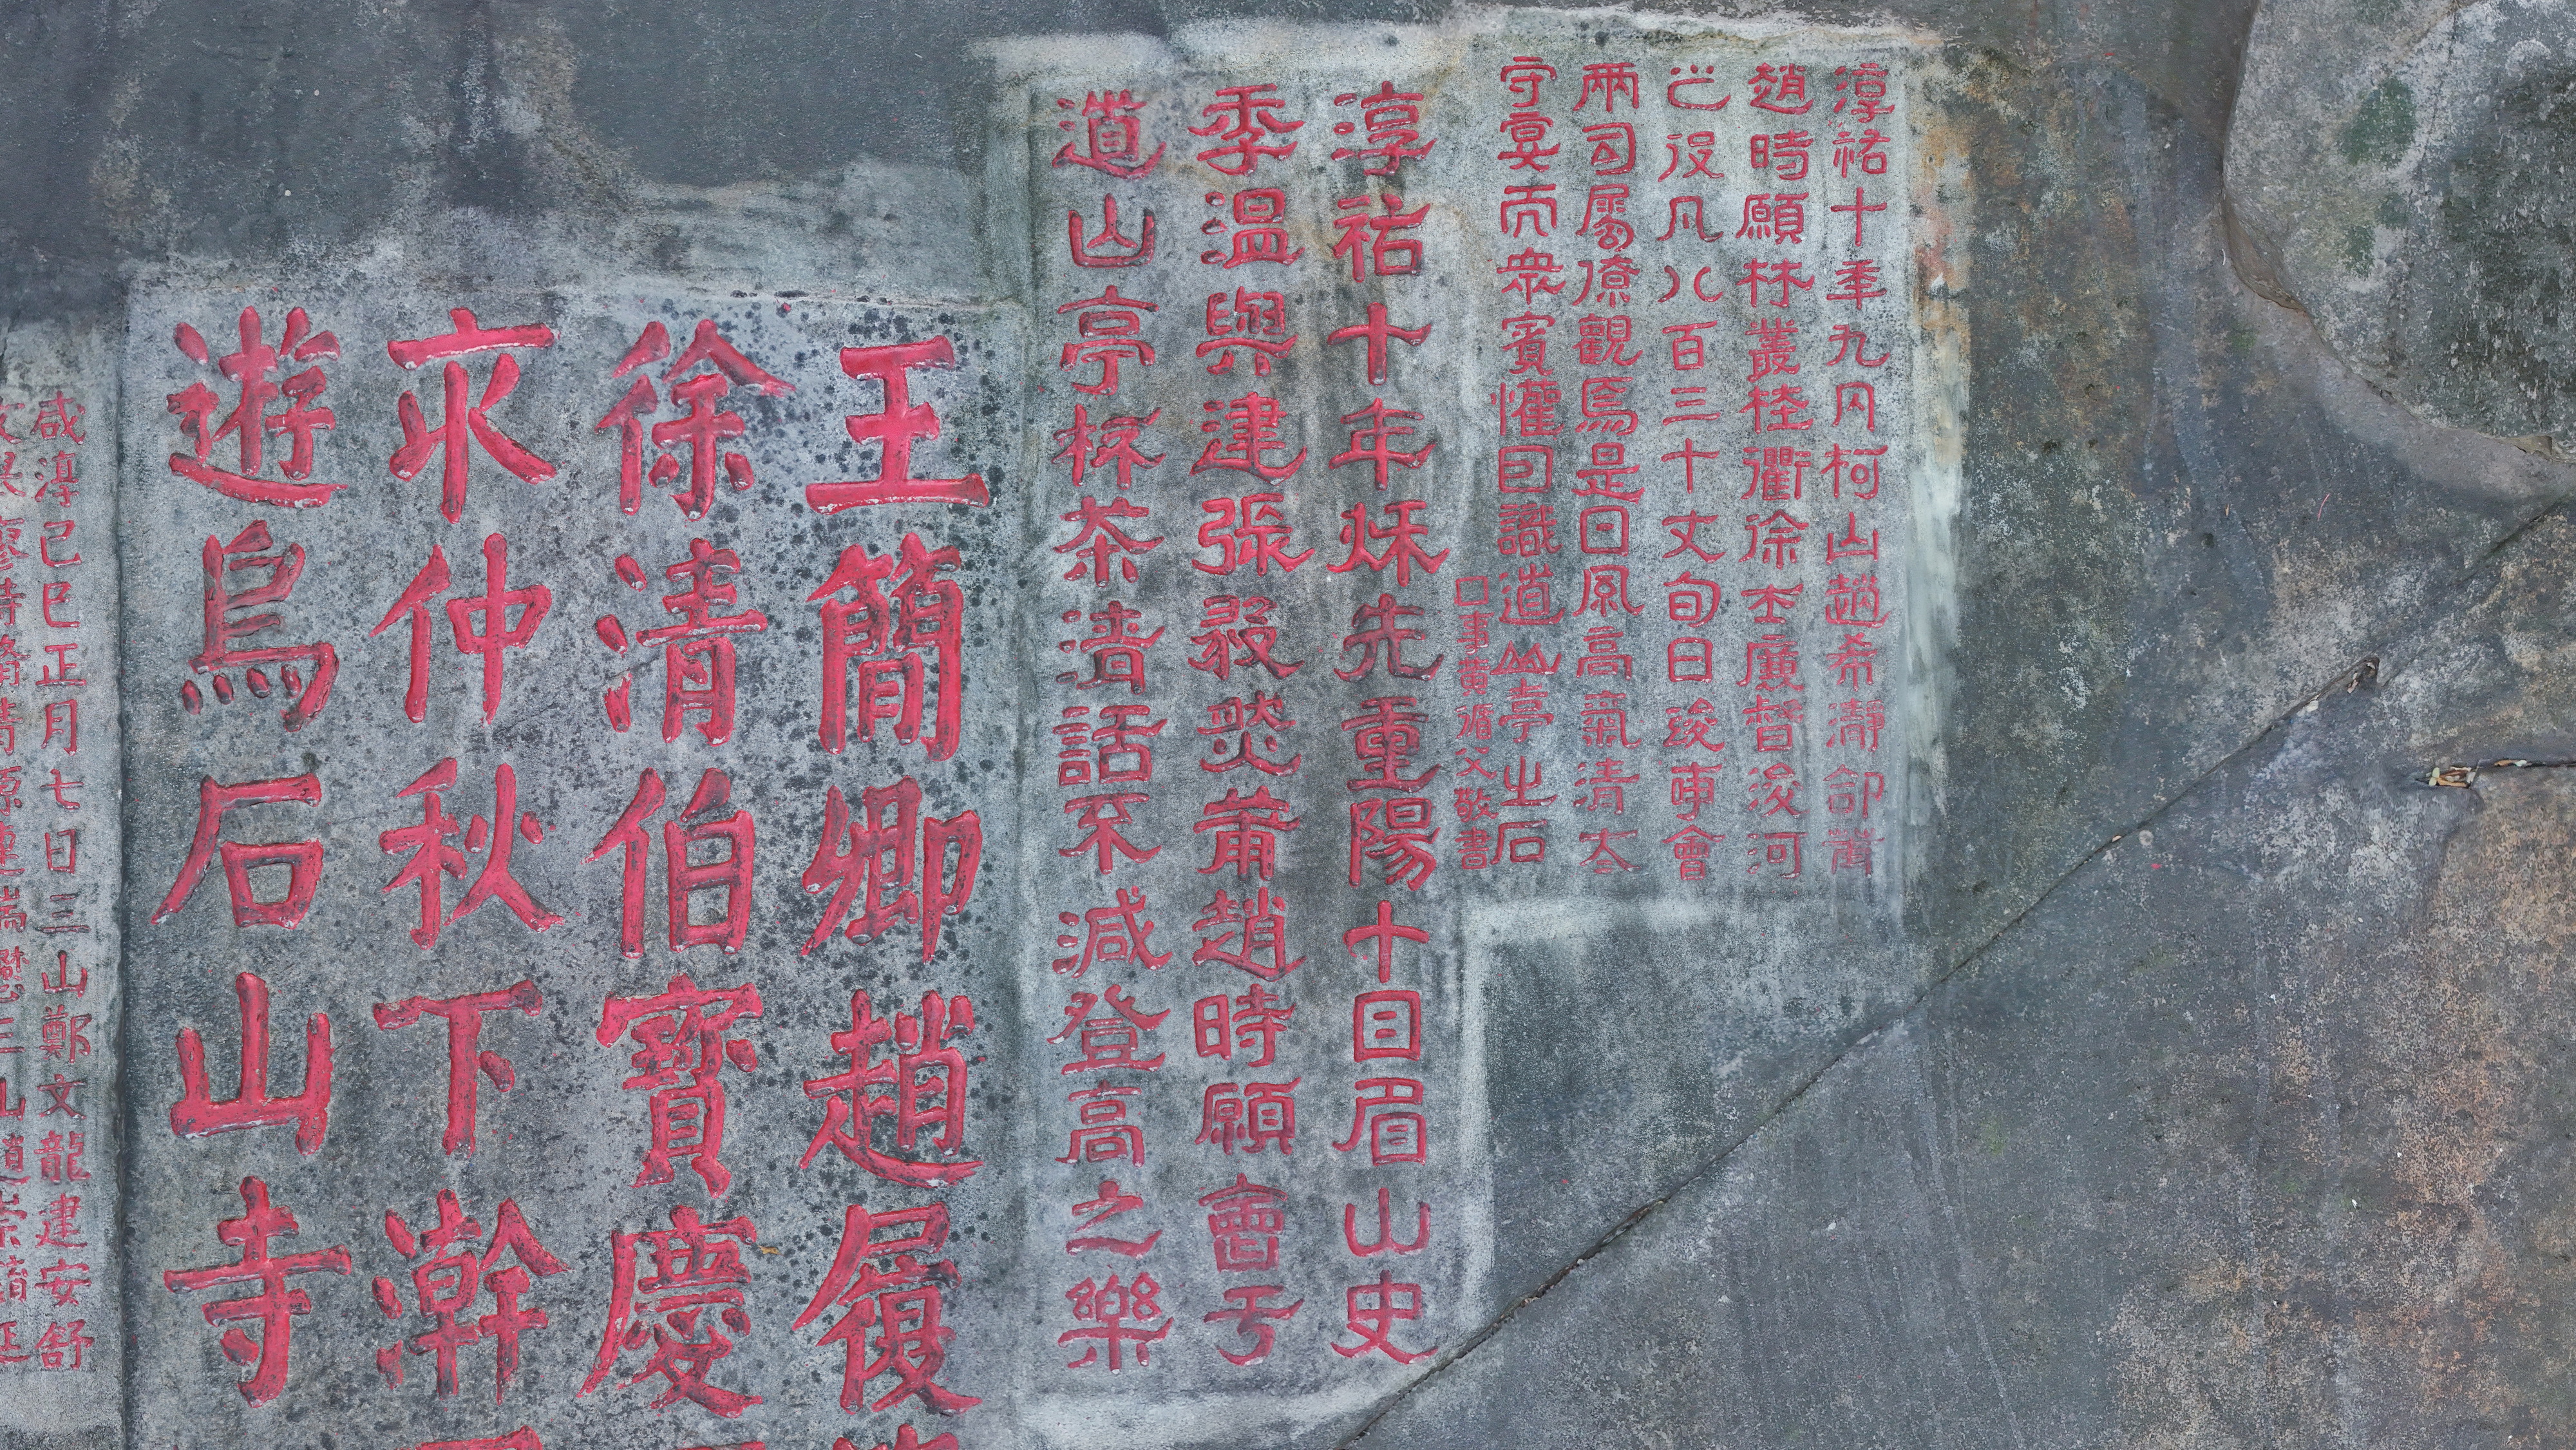 淳祐十年九月柯山趙希瀞命黃
趙時願林叢桂衢徐士廣督浚河
之役凡八百三十丈旬日竣事會
兩司屬僚觀焉是日風高氣清太
守宴而衆賓懽因識道山亭之石
□事黃循父敬書
淳祐十年秌先重陽十日眉山史
季溫與建張㱾焱莆趙時願會于
道山亭杯茶清話不減登高之樂
王簡卿趙履
徐清伯寶慶
來仲秋下澣
遊烏石山寺
咸淳己巳正月七日三山鄭文龍建安舒